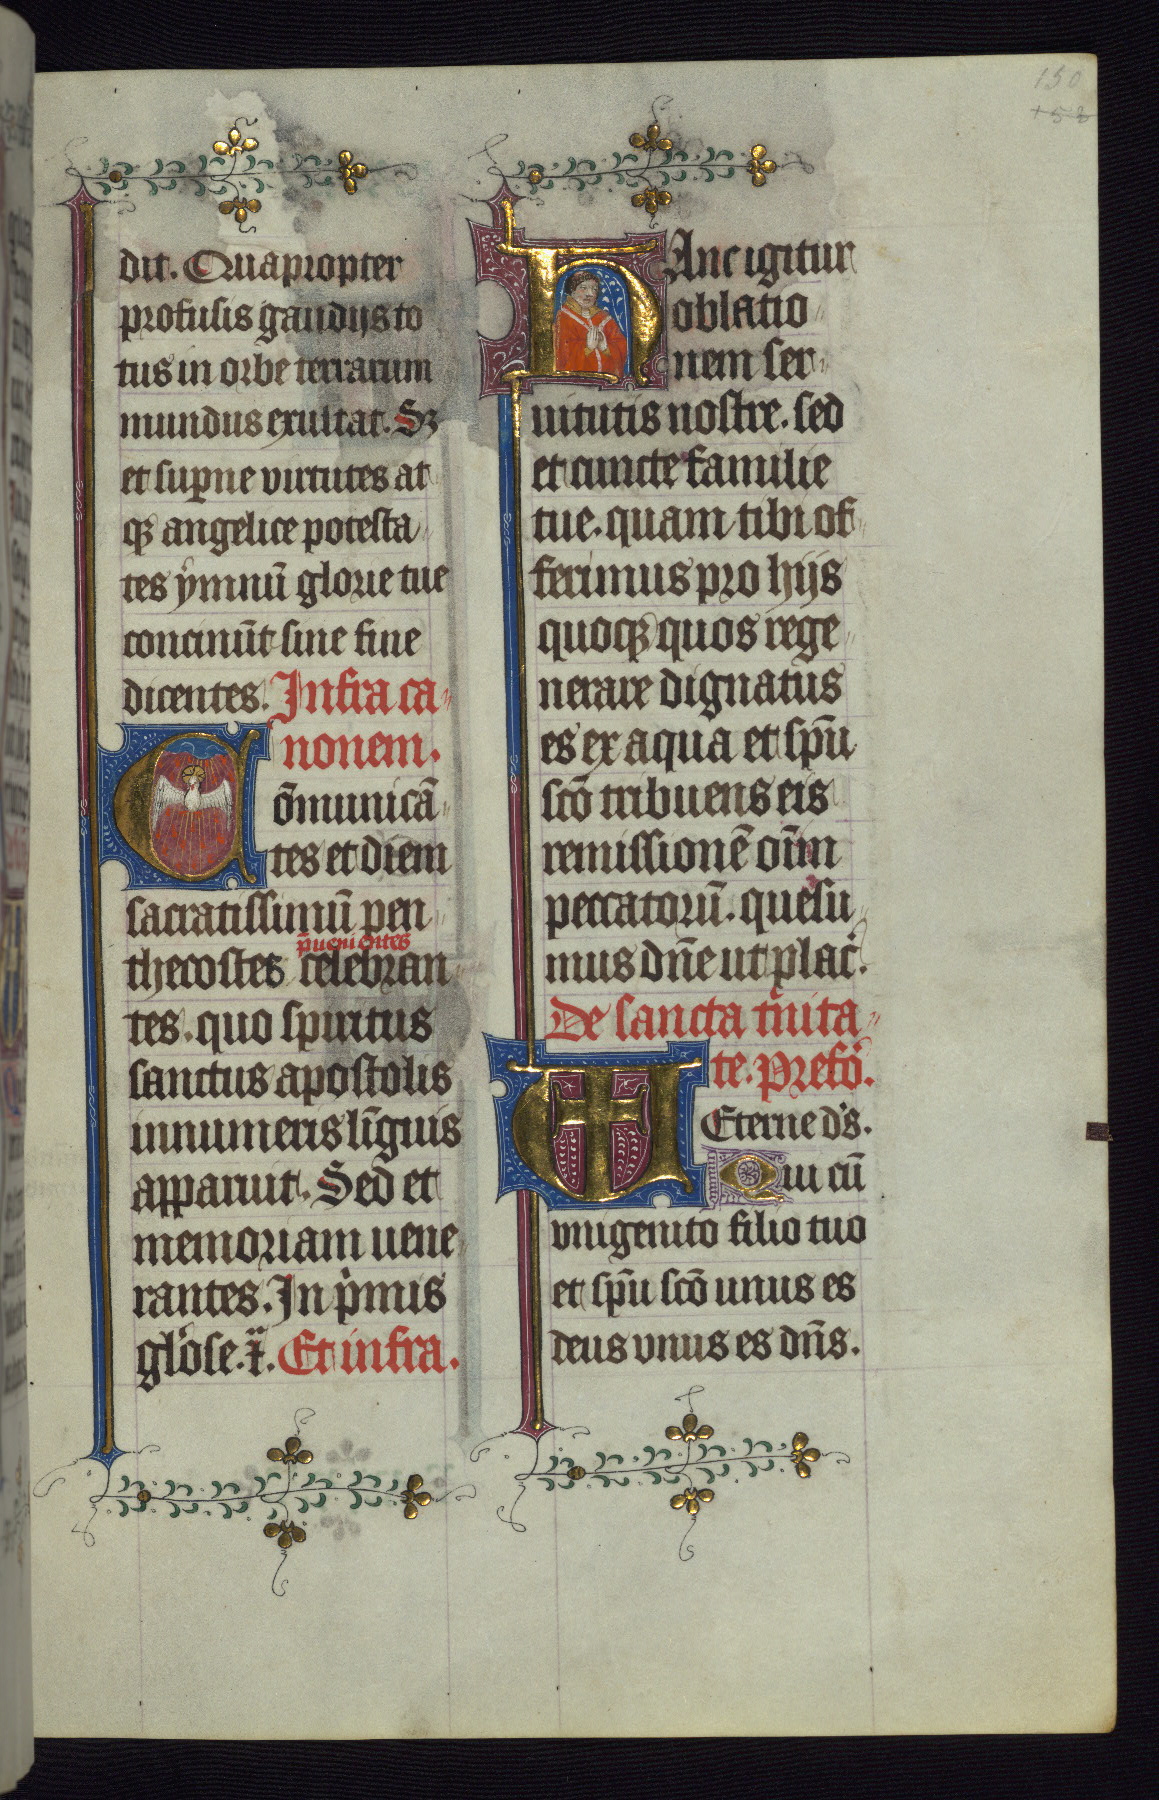 150
158
dit. Quapropter
profusis gaudijs to
tus in orbe terrarum
mundus exultat. Sꝫ
et suꝑne virtutes at
qꝫ angelice potesta
tes ẏmnū glorie tue
concinūt sine fine
dicentes. Infra ca
nonem.
Cōmunicā
tes et diem
sacratissimū pen
p̄uenientes
thecostes celebran
tes. quo spiritus
sanctus apostolis
innumeris līguis
apparuit. Sed et
memoriam uene
rantes. In pͥmis
gloͥse. ⁊̄. Et infra.
HAnc igitur
oblatio
nem ser
uitutis nostre. sed
et cuncte familie
tue. quam tibi of
ferimus pro hijs
quoqꝫ quos rege
nerare dignatus
es ex aqua et sp̄u
sc̄o tribuens eis
remissionē oīm
peccatorū. quesu
mus dn̄e ut plac̄.
De sancta tͥnita
te. Prefō.
Eterne d̄s.
Qui cū
vnigenito filio tuo
et sp̄u sc̄o unus es
deus vnus es dn̄s.